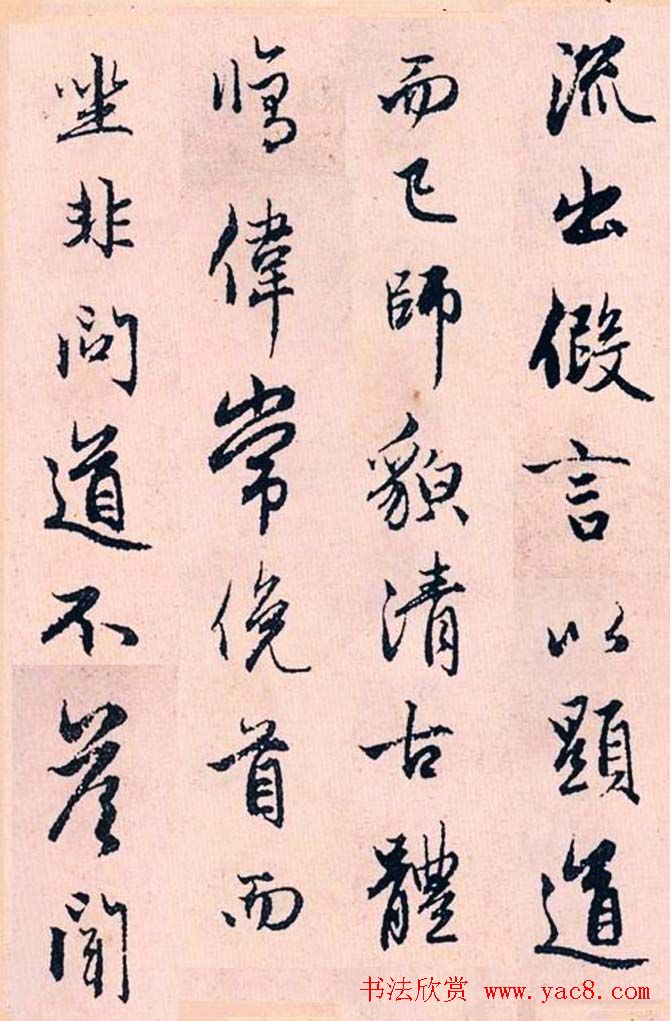 流出假言以顯道
而已師貌清古體
脩偉常俛首而
坐非問道不答聞
书法欣赏 www.yac8.com